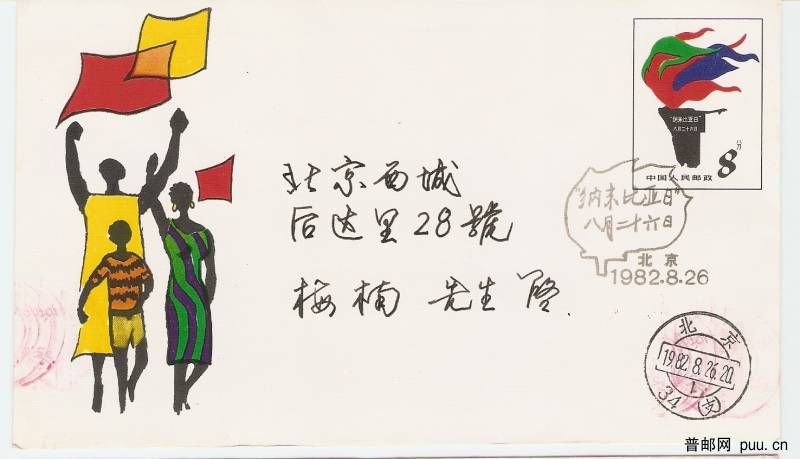 "纳米比亚日"
八月二十六日
8分
中国人民邮政
北京西城
后达里28號
梅楠 先生 启
"纳米比亚日"
八月二十六日
北京
1982.8.26
北京
1982.8.26.20
34 (支)
普邮网 puu.cn